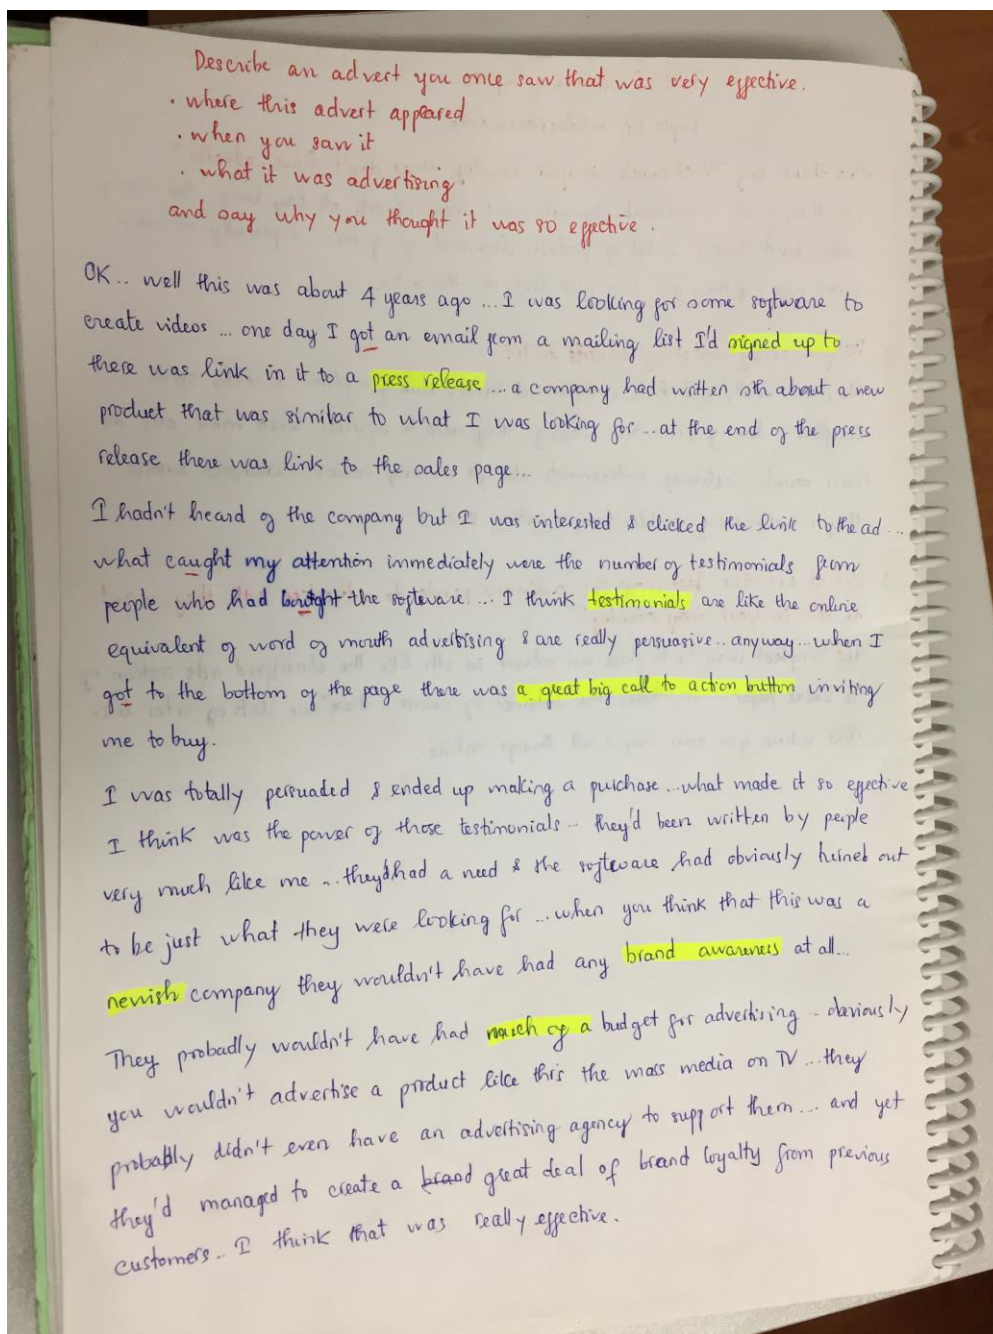 Describe an advert you once saw that was very effective.
· where this advert appeared
· when you saw it
· what it was advertising.
and say why you thought it was so effective.
OK.. well this was about 4 years ago ... I was looking for some software to
create videos ... one day I got an email from a mailing list I'd signed up to...
there was link in it to a press release ... a company had written sth about a new
product that was similar to what I was looking for ... at the end of the press
release there was link to the sales page...
I hadn't heard of the company but I was interested & clicked the link to the ad ...
what caught my attention immediately were the number of testimonials from
people who had bought the software ... I think testimonials are like the online
equivalent of word of mouth advertising & are really persuasive.. anyway... when I
got to the bottom of the page there was a great big call to action button inviting
me to buy.
I was totally persuaded & ended up making a purchase ... what made it so effective
I think was the power of those testimonials .. they'd been written by people
very much like me ... they'd had a need & the software had obviously turned out
to be just what they were looking for ... when you think that this was a
newish company they wouldn't have had any brand awareness at all...
They probadly wouldn't have had much of a budget for advertising .. obviously
you wouldn't advertise a product like this the mass media on TV ... they
probably didn't even have an advertising agency to support them ... and yet
they'd managed to create a brand great deal of brand loyalty from previous
customers.. I think that was really effective.